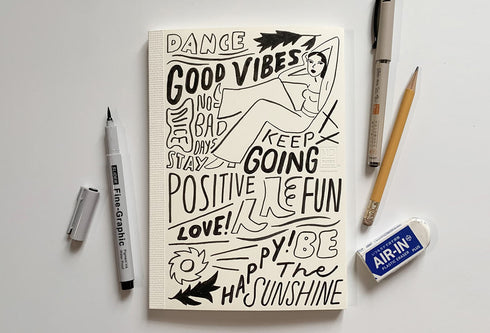 DANCE
GOOD VIBES
NO
BAD
DAYS
NICE
STAY
KEEP
GOING
POSITIVE
FUN
LOVE!
HAPPY!
BE
The
SUNSHINE
Fine-Graphic
AIR-IN
PLASTIC ERASER